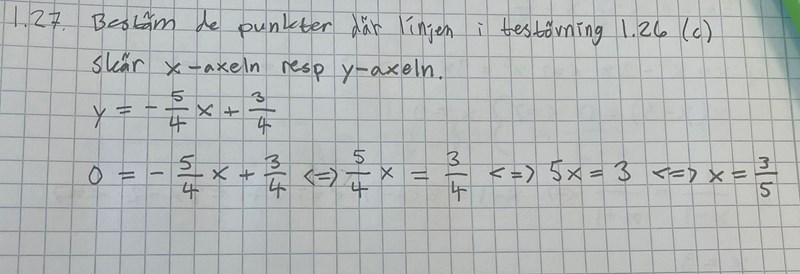 1.27. Bestäm de punkter där linjen i testövning 1.26 (c)
skär x-axeln resp y-axeln.
y = - 5/4 x + 3/4
0 = - 5/4 x + 3/4 <=> 5/4 x = 3/4 <=> 5x = 3 <=> x = 3/5